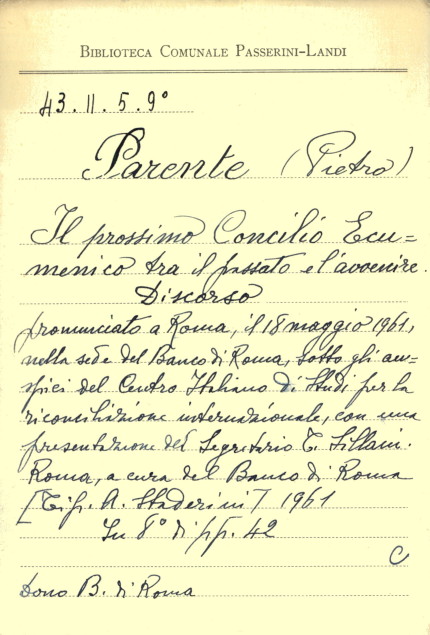 BIBLIOTECA COMUNALE PASSERINI-LANDI
43.II.5.9°
Parente (Pietro)
Il prossimo Concilio Ecu=
menico tra il passato e l'avvenire.
Discorso
pronunciato a Roma, il 18 maggio 1961,
nella sede del Banco di Roma, sotto gli au=
spici del Centro Italiano di Studi per la
riconciliazione internazionale, con una
presentazione del Segretario T. Sillani.
Roma, a cura del Banco di Roma
[Tip. A. Staderini] 1961
In 8° di pp. 42
C
Dono B. di Roma